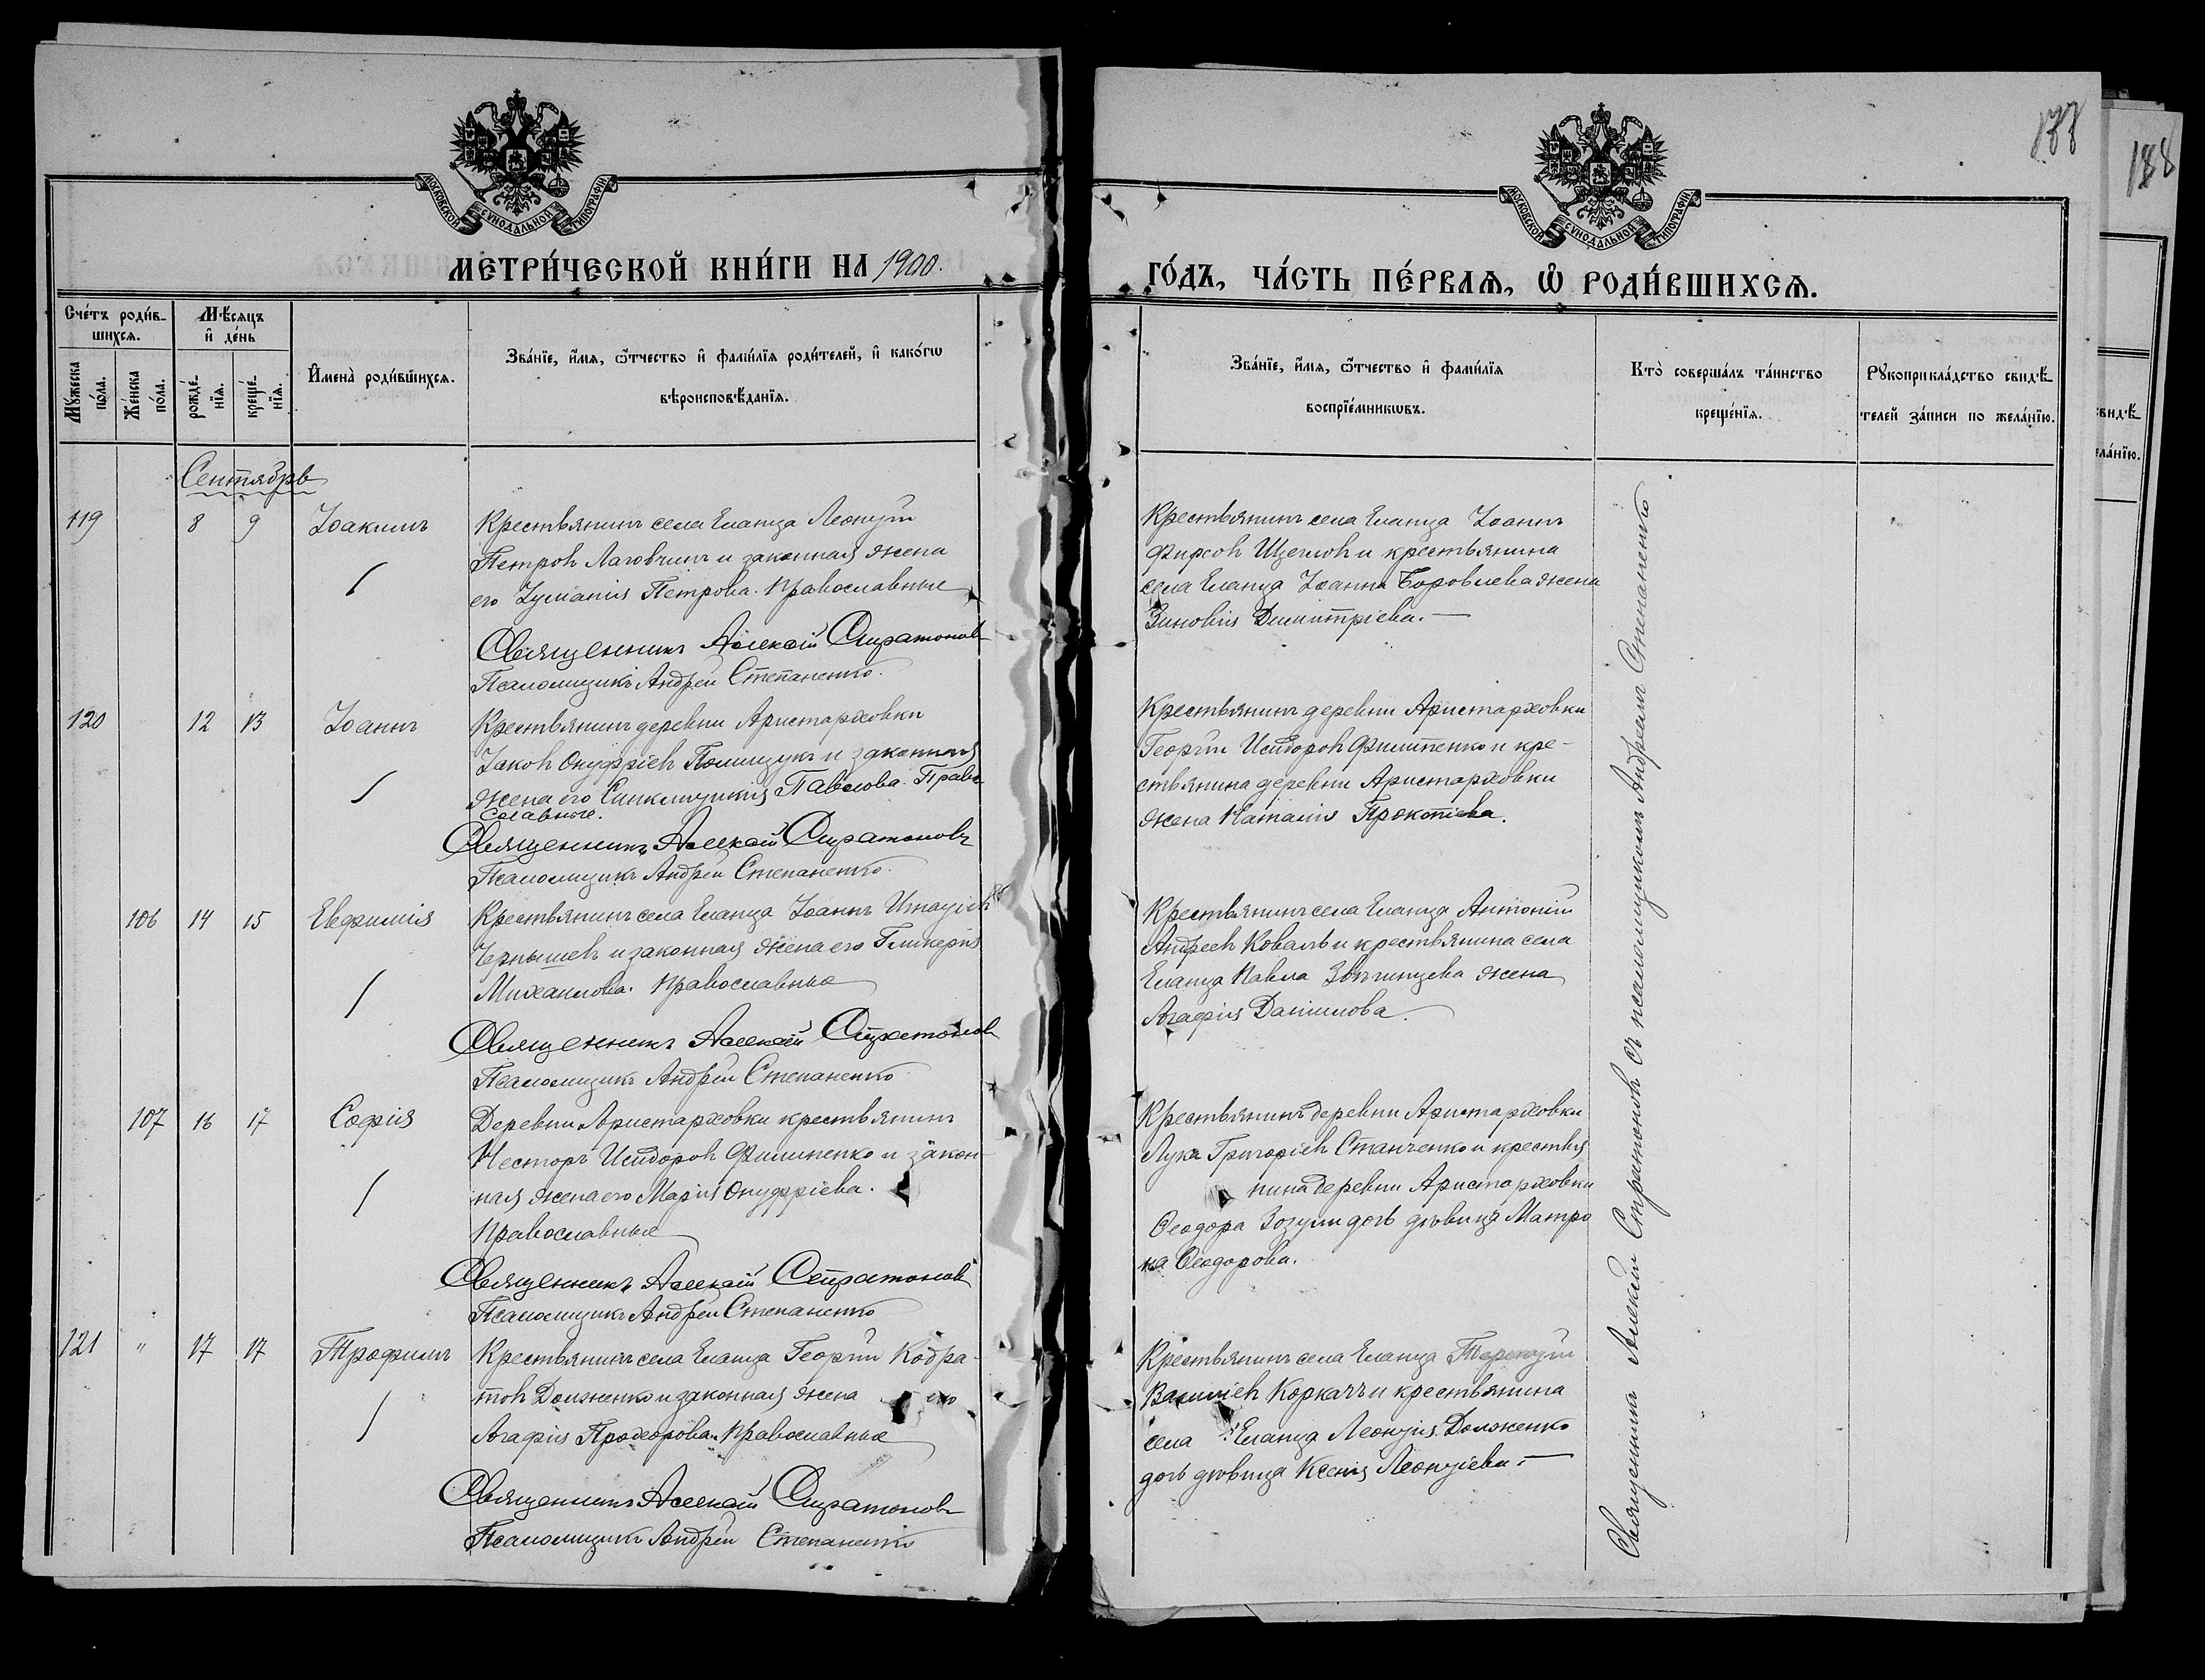 188
188
МОСКОВСКОЙ СѴНОДАЛЬНОЙ ТИПОГРАФІИ
МОСКОВСКОЙ СѴНОДАЛЬНОЙ ТИПОГРАФІИ
МЕТРИ́ЧЕСКОЙ КНИ́ГИ НА 1900.
ГО́ДЪ, ЧА́СТЬ ПЕ́РВАѦ, Ѡ҆ РОДИ́ВШИХСѦ.
Сче́тъ роди́в-
шихсѧ.
Мѣ́сѧцъ
и҆ де́нь
Мꙋ́жеска
по́ла.
Же́нска
по́ла.
рожде́-
нїѧ.
креще́-
нїѧ.
И҆мена̀ роди́вшихсѧ.
Зва́нїе, и҆́мѧ, ѻ҆́тчество и҆ фами́лїѧ роди́телей, и҆ како́гѡ
вѣроисповѣ́данїѧ.
Зва́нїе, и҆́мѧ, ѻ҆́тчество и҆ фами́лїѧ
воспрїе́мникѡвъ.
Кто̀ соверша́лъ та́инство
креще́нїѧ.
Рꙋкоприкла́дство свидѣ́-
телей за́писи по жела́нїю.
свидѣ́-
ела́нїю.
Сентябрь
119
8
9
Іоакимъ
Крестьянинъ села Еланца Леонтій
Петровъ Лаговчинъ и законная жена
его Іуліанія Петрова. Православные
Священникъ Алексій Стратоновъ
Псаломщикъ Андрей Степаненко.
Крестьянинъ села Еланца Іоаннъ
Фирсовъ Щегловъ и крестьянина
села Еланца Іоанна Боровлева жена
Зиновія Димитріева.
120
12
13
Іоаннъ
Крестьянинъ деревни Аристарховки
Іаковъ Онуфріевъ Полищукъ и законная
жена его Синклитикія Павлова. Право
славные.
Священникъ Алексій Стратоновъ
Псаломщикъ Андрей Степаненко.
Крестьянинъ деревни Аристарховки
Георгій Исидоровъ Филипенко и кре-
стьянина деревни Аристарховки
жена Наталія Прокопіева.
106
14
15
Евфимія
Крестьянинъ села Еланца Іоаннъ Игнатіевъ
Чернышевъ и законная жена его Гликерія
Михаилова. Православные
Священникъ Алексій Стратоновъ
Псаломщикъ Андрей Степаненко
Крестьянинъ села Еланца Антоній
Андреевъ Коваль и крестьянина села
Еланца Павла жена
Агафія Даніилова.
107
16
17
Софія
Деревни Аристарховки крестьянинъ
Несторъ Исидоровъ Филипенко и закон-
ная жена его Марія Онуфріева.
Православные
Священникъ Алексій Стратоновъ
Псаломщикъ Андрей Степаненко
Крестьянинъ деревни Аристарховки
Лука Григоріевъ Станченко и крестья
нина деревни Аристарховки
Ѳеодора Зозули дочь дѣвица Матро
на Ѳеодорова.
121
"
17
17
Трофимъ
Крестьянинъ села Еланца Георгій Кодра-
товъ Долженко и законная жена его
Агафія Прохорова. Православные
Священникъ Алексій Стратоновъ
Псаломщикъ Андрей Степаненко
Крестьянинъ села Еланца Терентій
Василіевъ Коркачъ и крестьянина
села Еланца Леонтія Долженко
дочь дѣвица Ксенія Леонтіева.
Священникъ Алексій Стратоновъ съ псаломщикомъ Андреемъ Степаненко